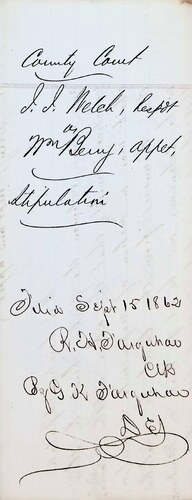 County Court
J. J. Welch, Respt
vs
Wm Berry, Appet,
Stipulation
Filed Sept 15 1862
R. H. Farquhar
Clk
By G K Farquhar
D Y